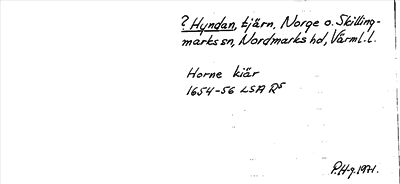 ? Hyndan, tjärn, Norge o. Skilling-
markssn, Nordmarks hd, Värml. l.
Horne kiär
1654-56 LSA R⁵
P.H-g. 1971.